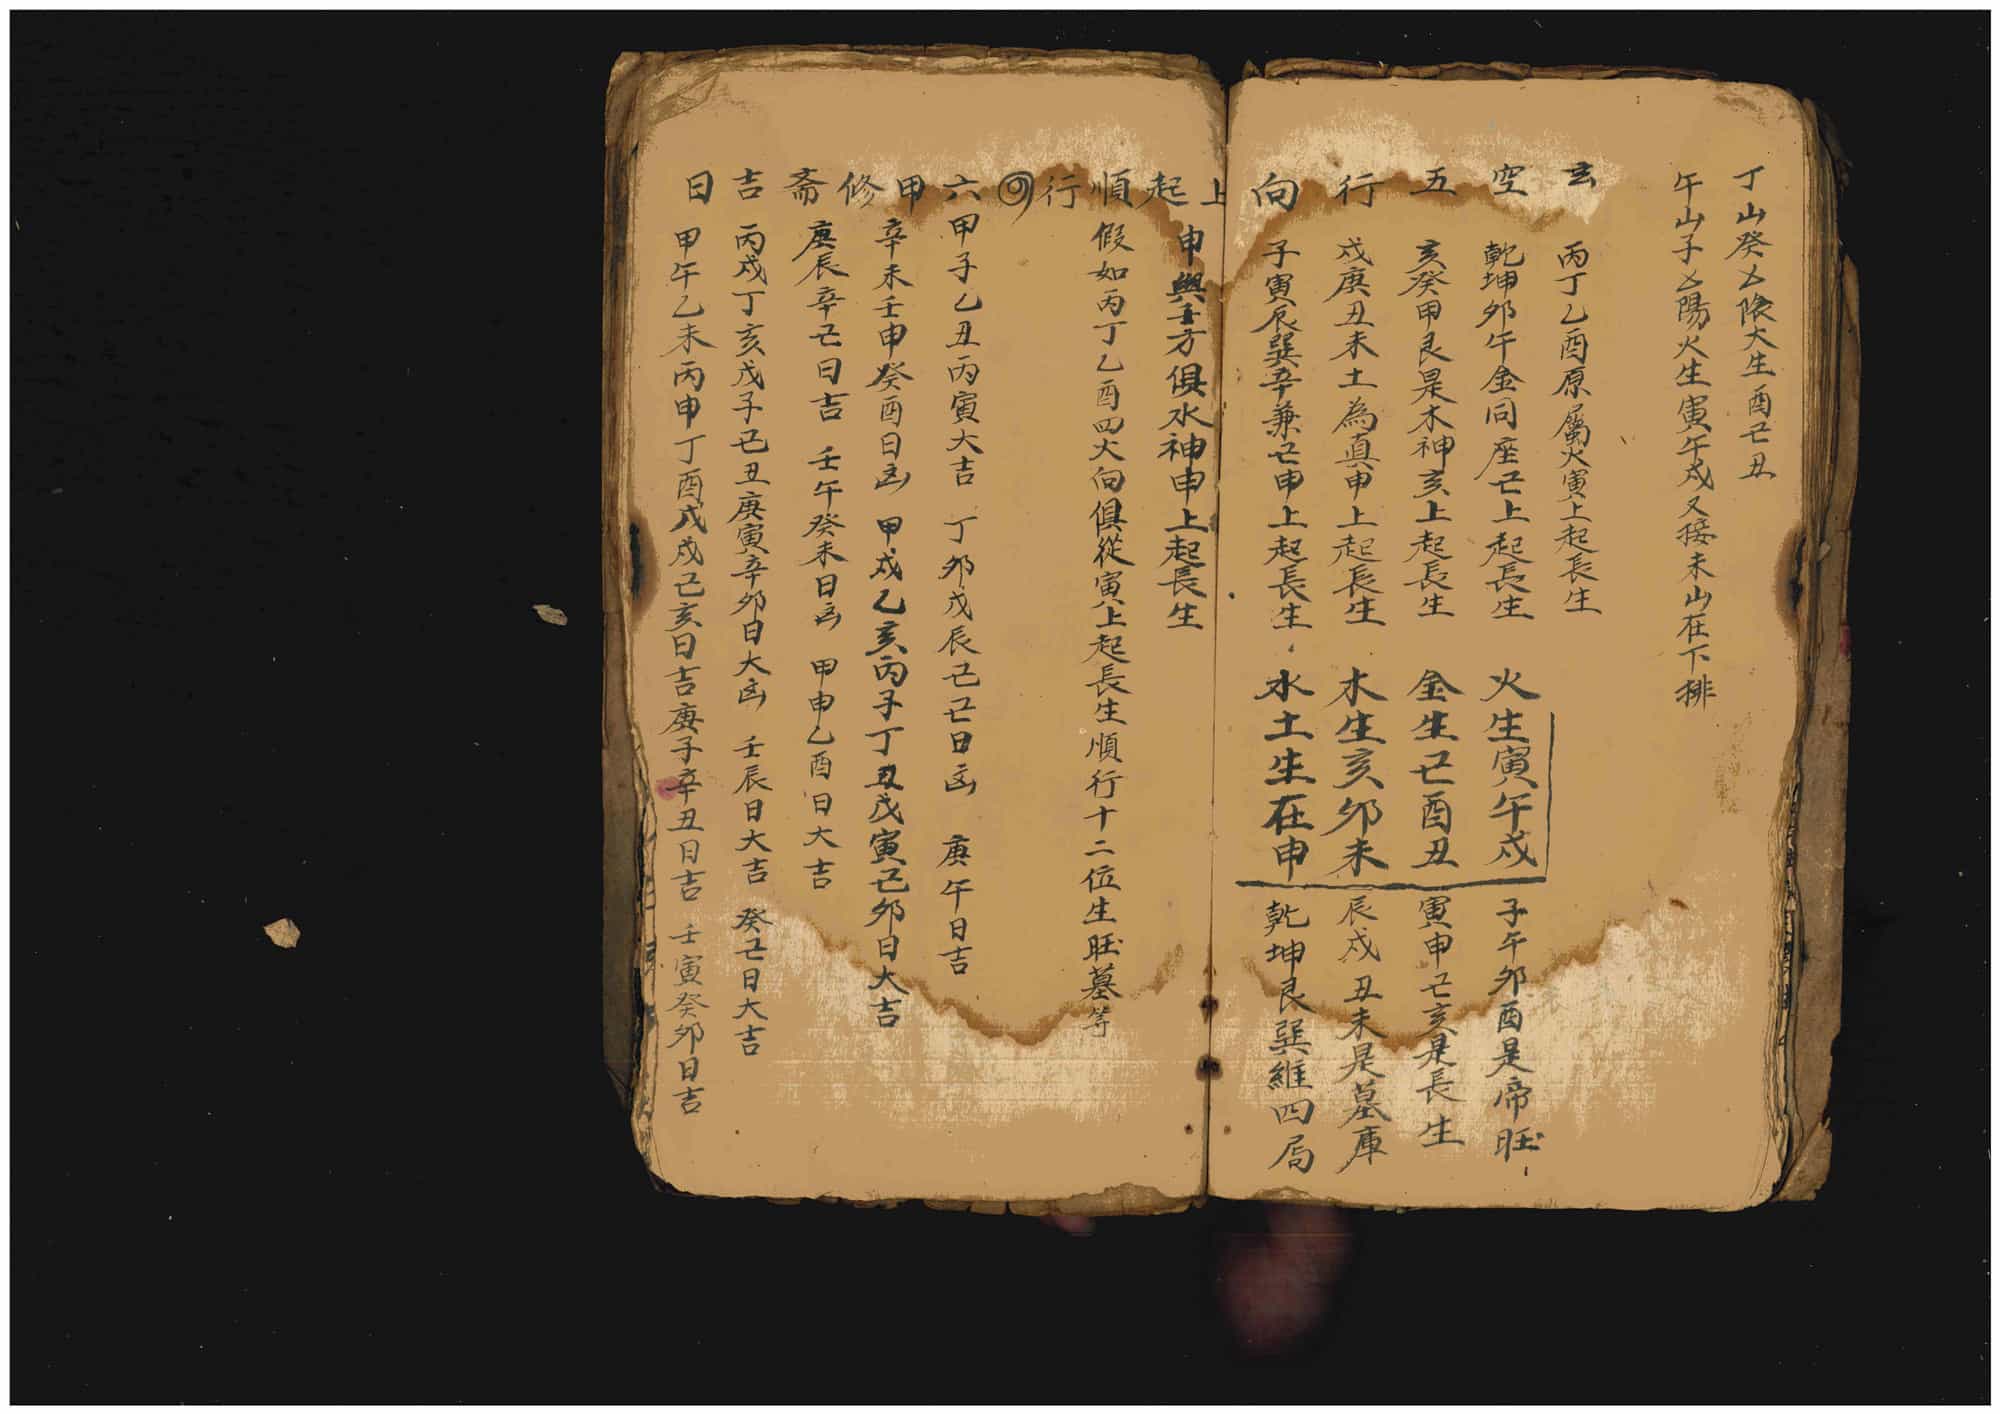 丁山癸㐅陰火生酉巳丑
午山子㐅陽火生寅午戌又接未山在下排
玄空五行向上起順行
丙丁乙酉原屬火寅上起長生
乾坤卯午金同座巳上起長生 火生寅午戌 子午卯酉是帝旺
亥癸甲艮是木神亥上起長生 金生巳酉丑 寅申巳亥是長生
戌庚丑未土為真申上起長生 木生亥卯未 辰戌丑未是墓庫
子寅辰巽辛兼巳申上起長生 水土生在申 乾坤艮巽維四局
申與壬方俱水神申上起長生
假如丙丁乙酉四火向俱從寅上起長生順行十二位生旺墓等
六甲修斋吉日
甲子乙丑丙寅大吉 丁卯戊辰己巳日凶 庚午日吉
辛未壬申癸酉日凶 甲戌乙亥丙子丁丑戊寅己卯日大吉
庚辰辛巳日吉 壬午癸未日凶 甲申乙酉日大吉
丙戌丁亥戊子己丑庚寅辛卯日大凶 壬辰日大吉 癸巳日大吉
甲午乙未丙申丁酉戊戌己亥日吉庚子辛丑日吉 壬寅癸卯日吉